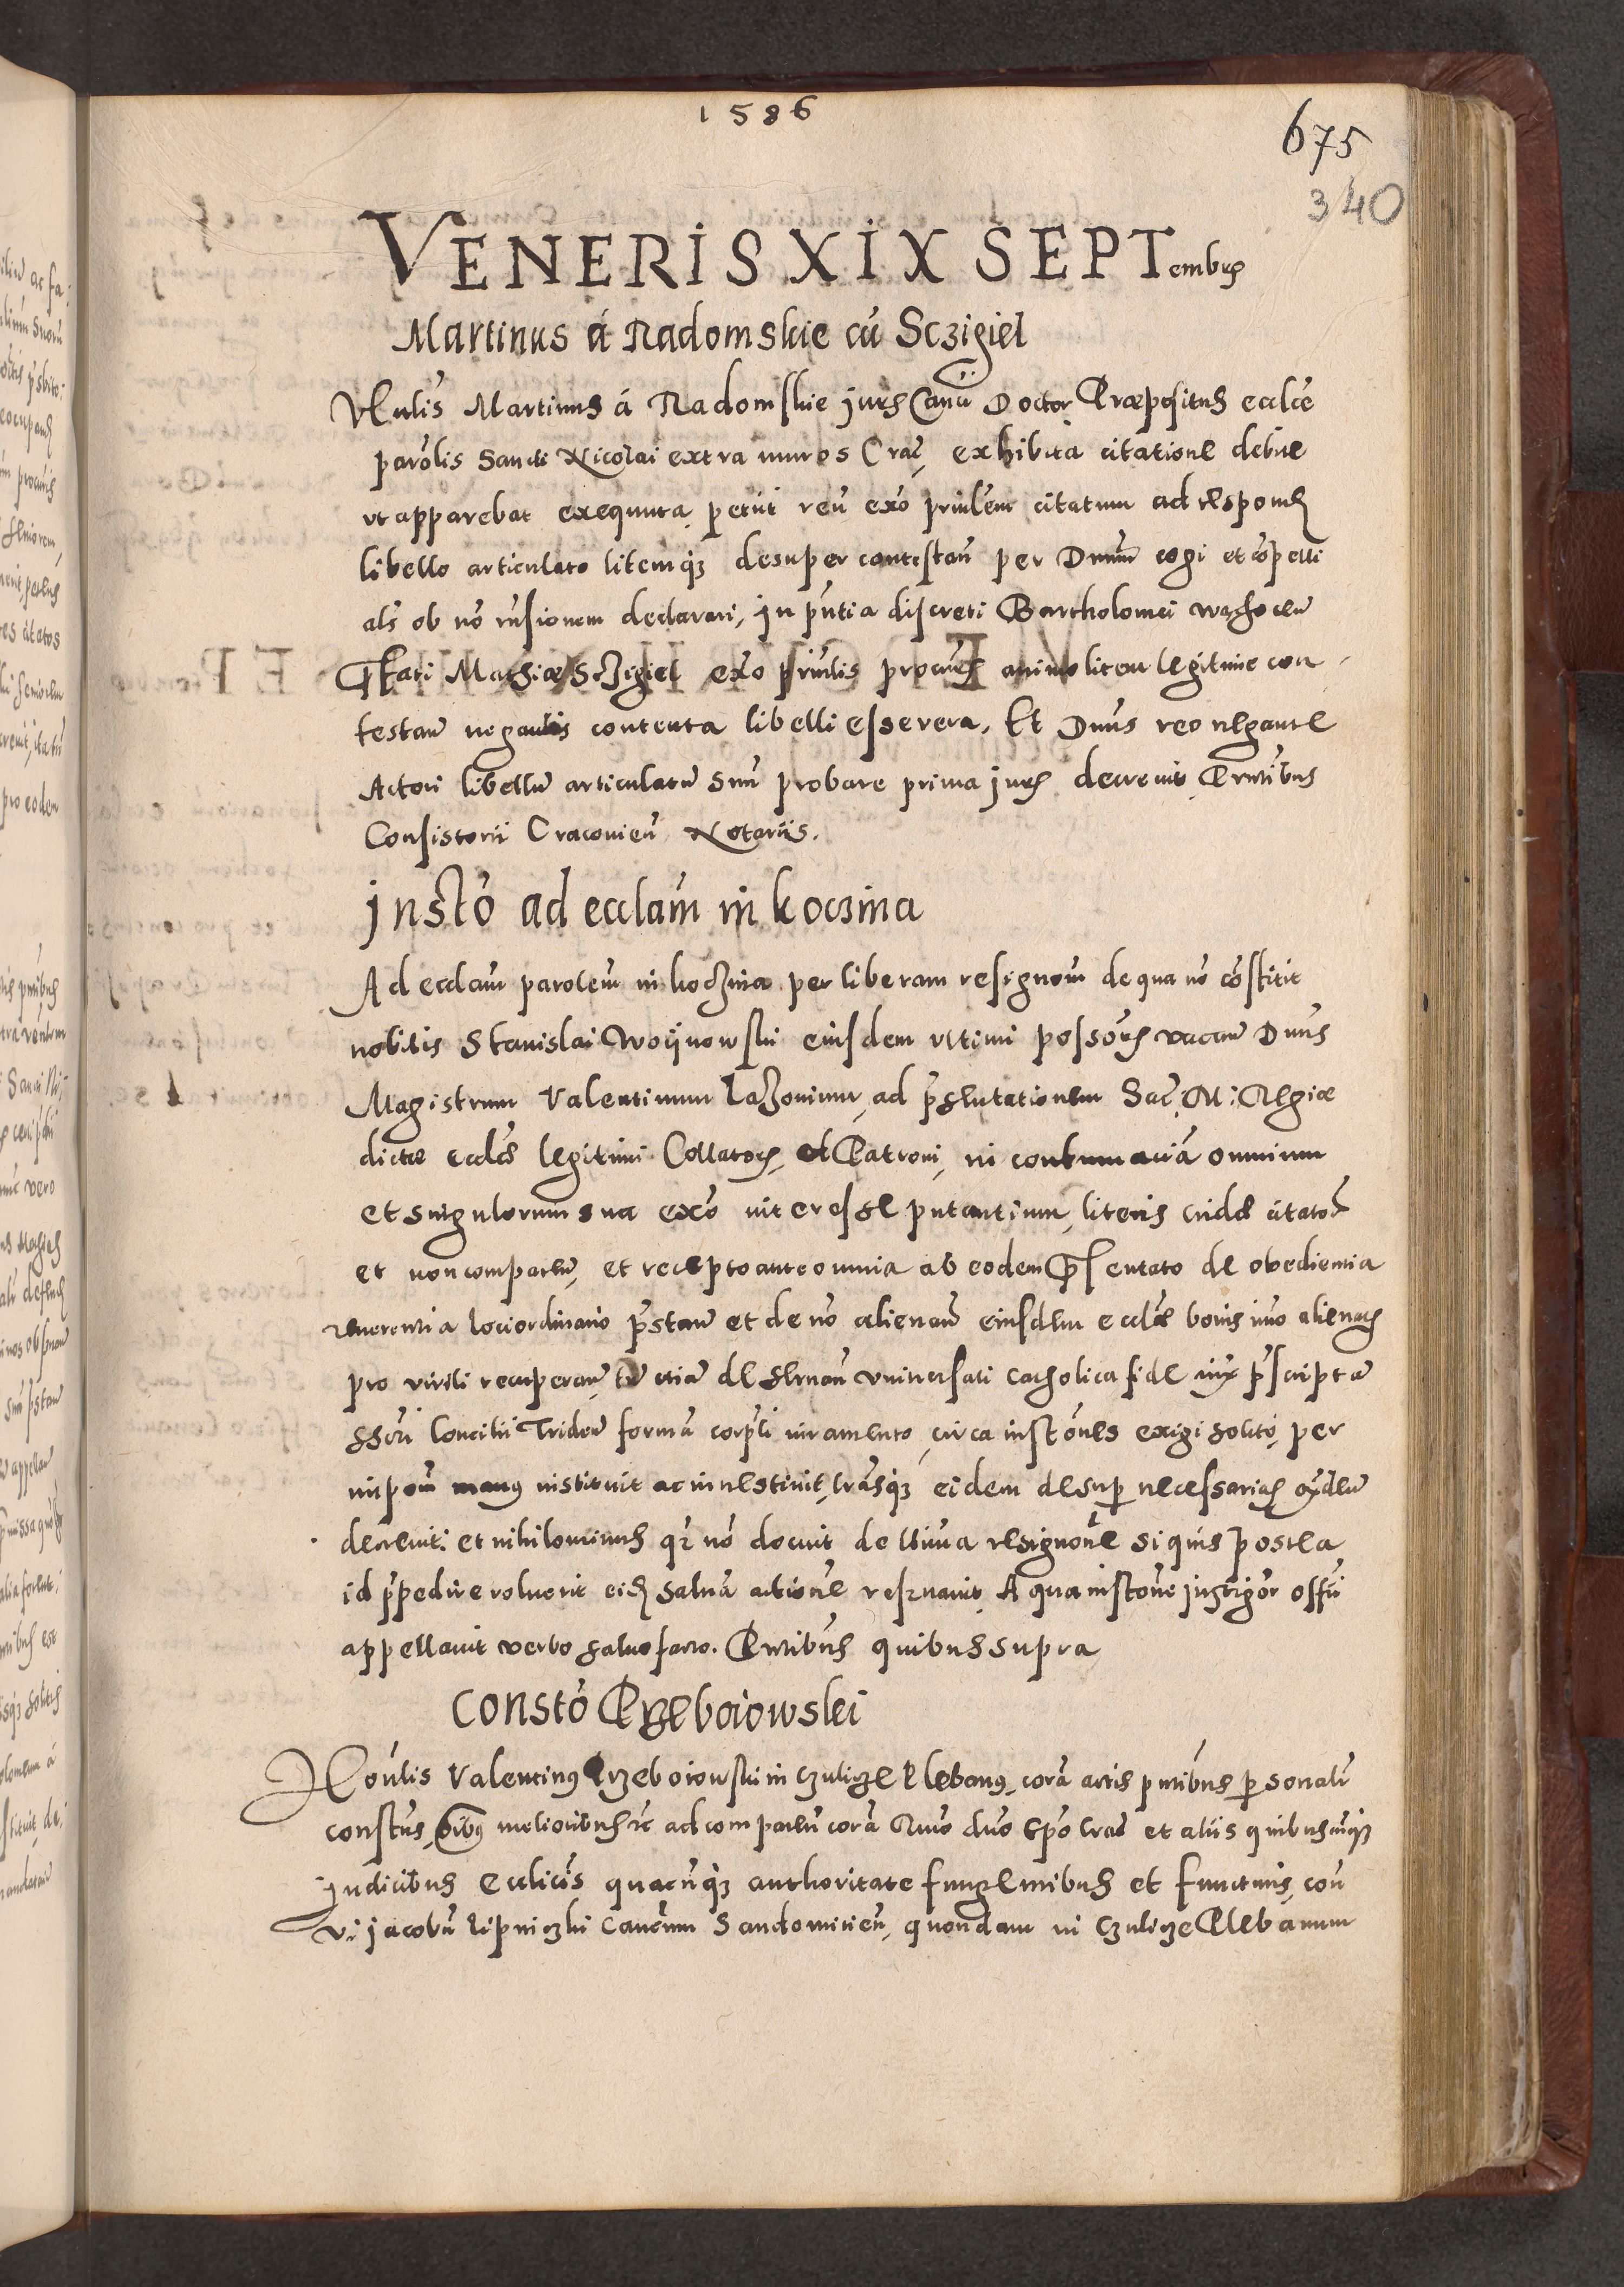 1586
675
340
VENERIS XIX SEPTembris
Martinus á Radomskie cū Sczigiel
Vnlis Martinus á Radomskie juris Canū Doctor Præpositus ecclæ
parolis Sancti Nicolai extra muros Crac, exhibita citatione debite
ut apparebat exequuta, petiit reū exō príulem citatum ad respondē
libello articulato litemq desuper contestan per Dnum cogi et cōpelli
als ob nō rnsionem declarari, in pntia discreti Bartholomei
Pfati Mathiæ Sczigiel exō príulis procuris animo litem legitime con
testan negantis contenta libelli esse vera, Et Dnus reo negante
Actori libellū articulatū suū probare prima juris decrevit, Pntibus
Consistorii Cracovien Notariis.
Jnsto ad ecclam in koczina
Ad ecclam parolem in koczina per liberam resignoem de qua nō cōstitit
nobilis Stanislai Woijnowski eiusdem ultimi possōris vacan Dnus
Magistrum Valentinum Lazonium, ad pręsentationem Sac. M. Regiæ
dictæ ecclæ legitimi Collatoris, et Patroni, in contumaciā omnium
et singulorum sua exō interesse putantium, literis citator
et non comparen, et recepto ante omnia ab eodem Psentato de obedientia
reverentia loci ordinario pręstan et de nō alienan eiusdem ecclæ bonis imo alienatis
pro virili recuperan tū etiā de servan universali catholica fide iux pręscriptā
sacri Concilii Triden formā corpli iuramento, circa institōnes exigi solito, per
impoem manus instituit ac investivit, lrasq eidem desup necessarias
decrevit. et nihilominus qz nō docuit de resignone si quis postea
id prępedire voluerit eid salvā actione reservavit, A qua instone instigor offii
appellavit verbo salvo facto. Pntibus quibus supra
Consto Przeboiowski
Honlis Valentinus Przeboiowski in Czulicze Plebanus, corā actis pntibus personalr
constus, oibus melioribus etc ad comparen corā Rmo dno Epo Crac et aliis quibuscunq
judicibus ecclicis quacunq authoritate fungentibus et functuris, con
V. jacobū Lipniczki Canonm Sandomirien, quondam in Czulicze Plebanum